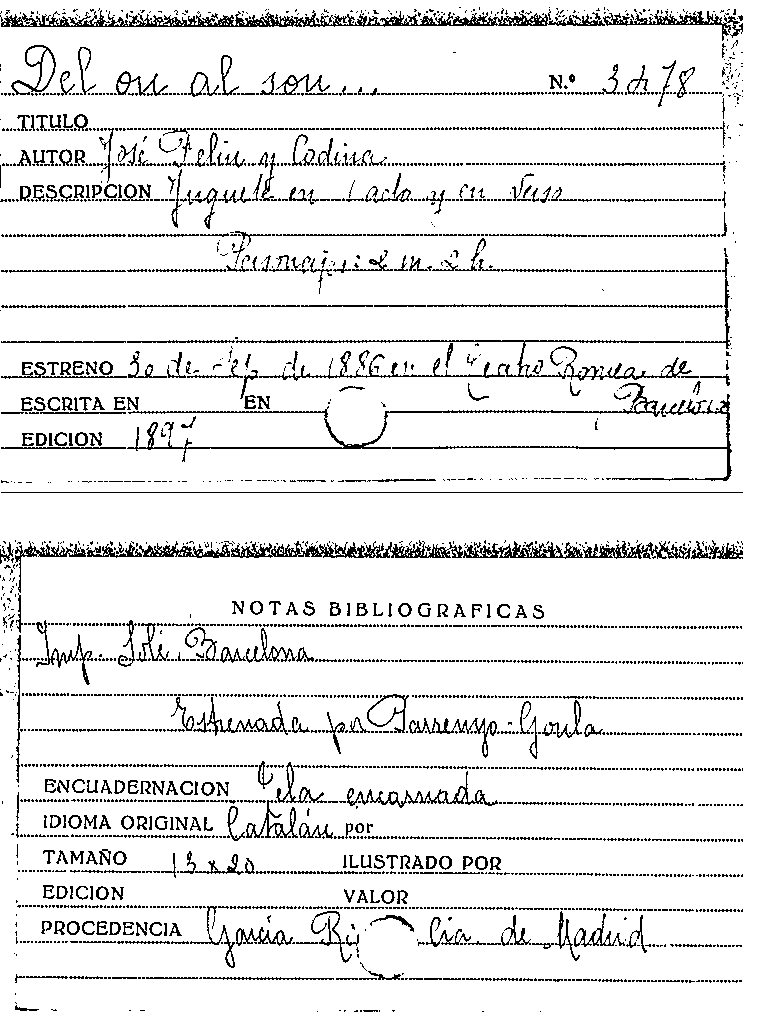 Del ou al sou... N.º 3478
TITULO
AUTOR José Feliu y Codina
DESCRIPCION Juguete en 1 acto y en verso
Personajes: 2 m. 2 h.
ESTRENO 30 de Sep. de 1886 en el Teatro Romea de
ESCRITA EN EN Barcelona
EDICION 1897
NOTAS BIBLIOGRAFICAS
Imp. Solé. Barcelona
Estrenada por Parrenyo-Goula
ENCUADERNACION Tela encarnada
IDIOMA ORIGINAL Catalán por
TAMAÑO 13 x 20 ILUSTRADO POR
EDICION VALOR
PROCEDENCIA García Ri Cia. de Madrid